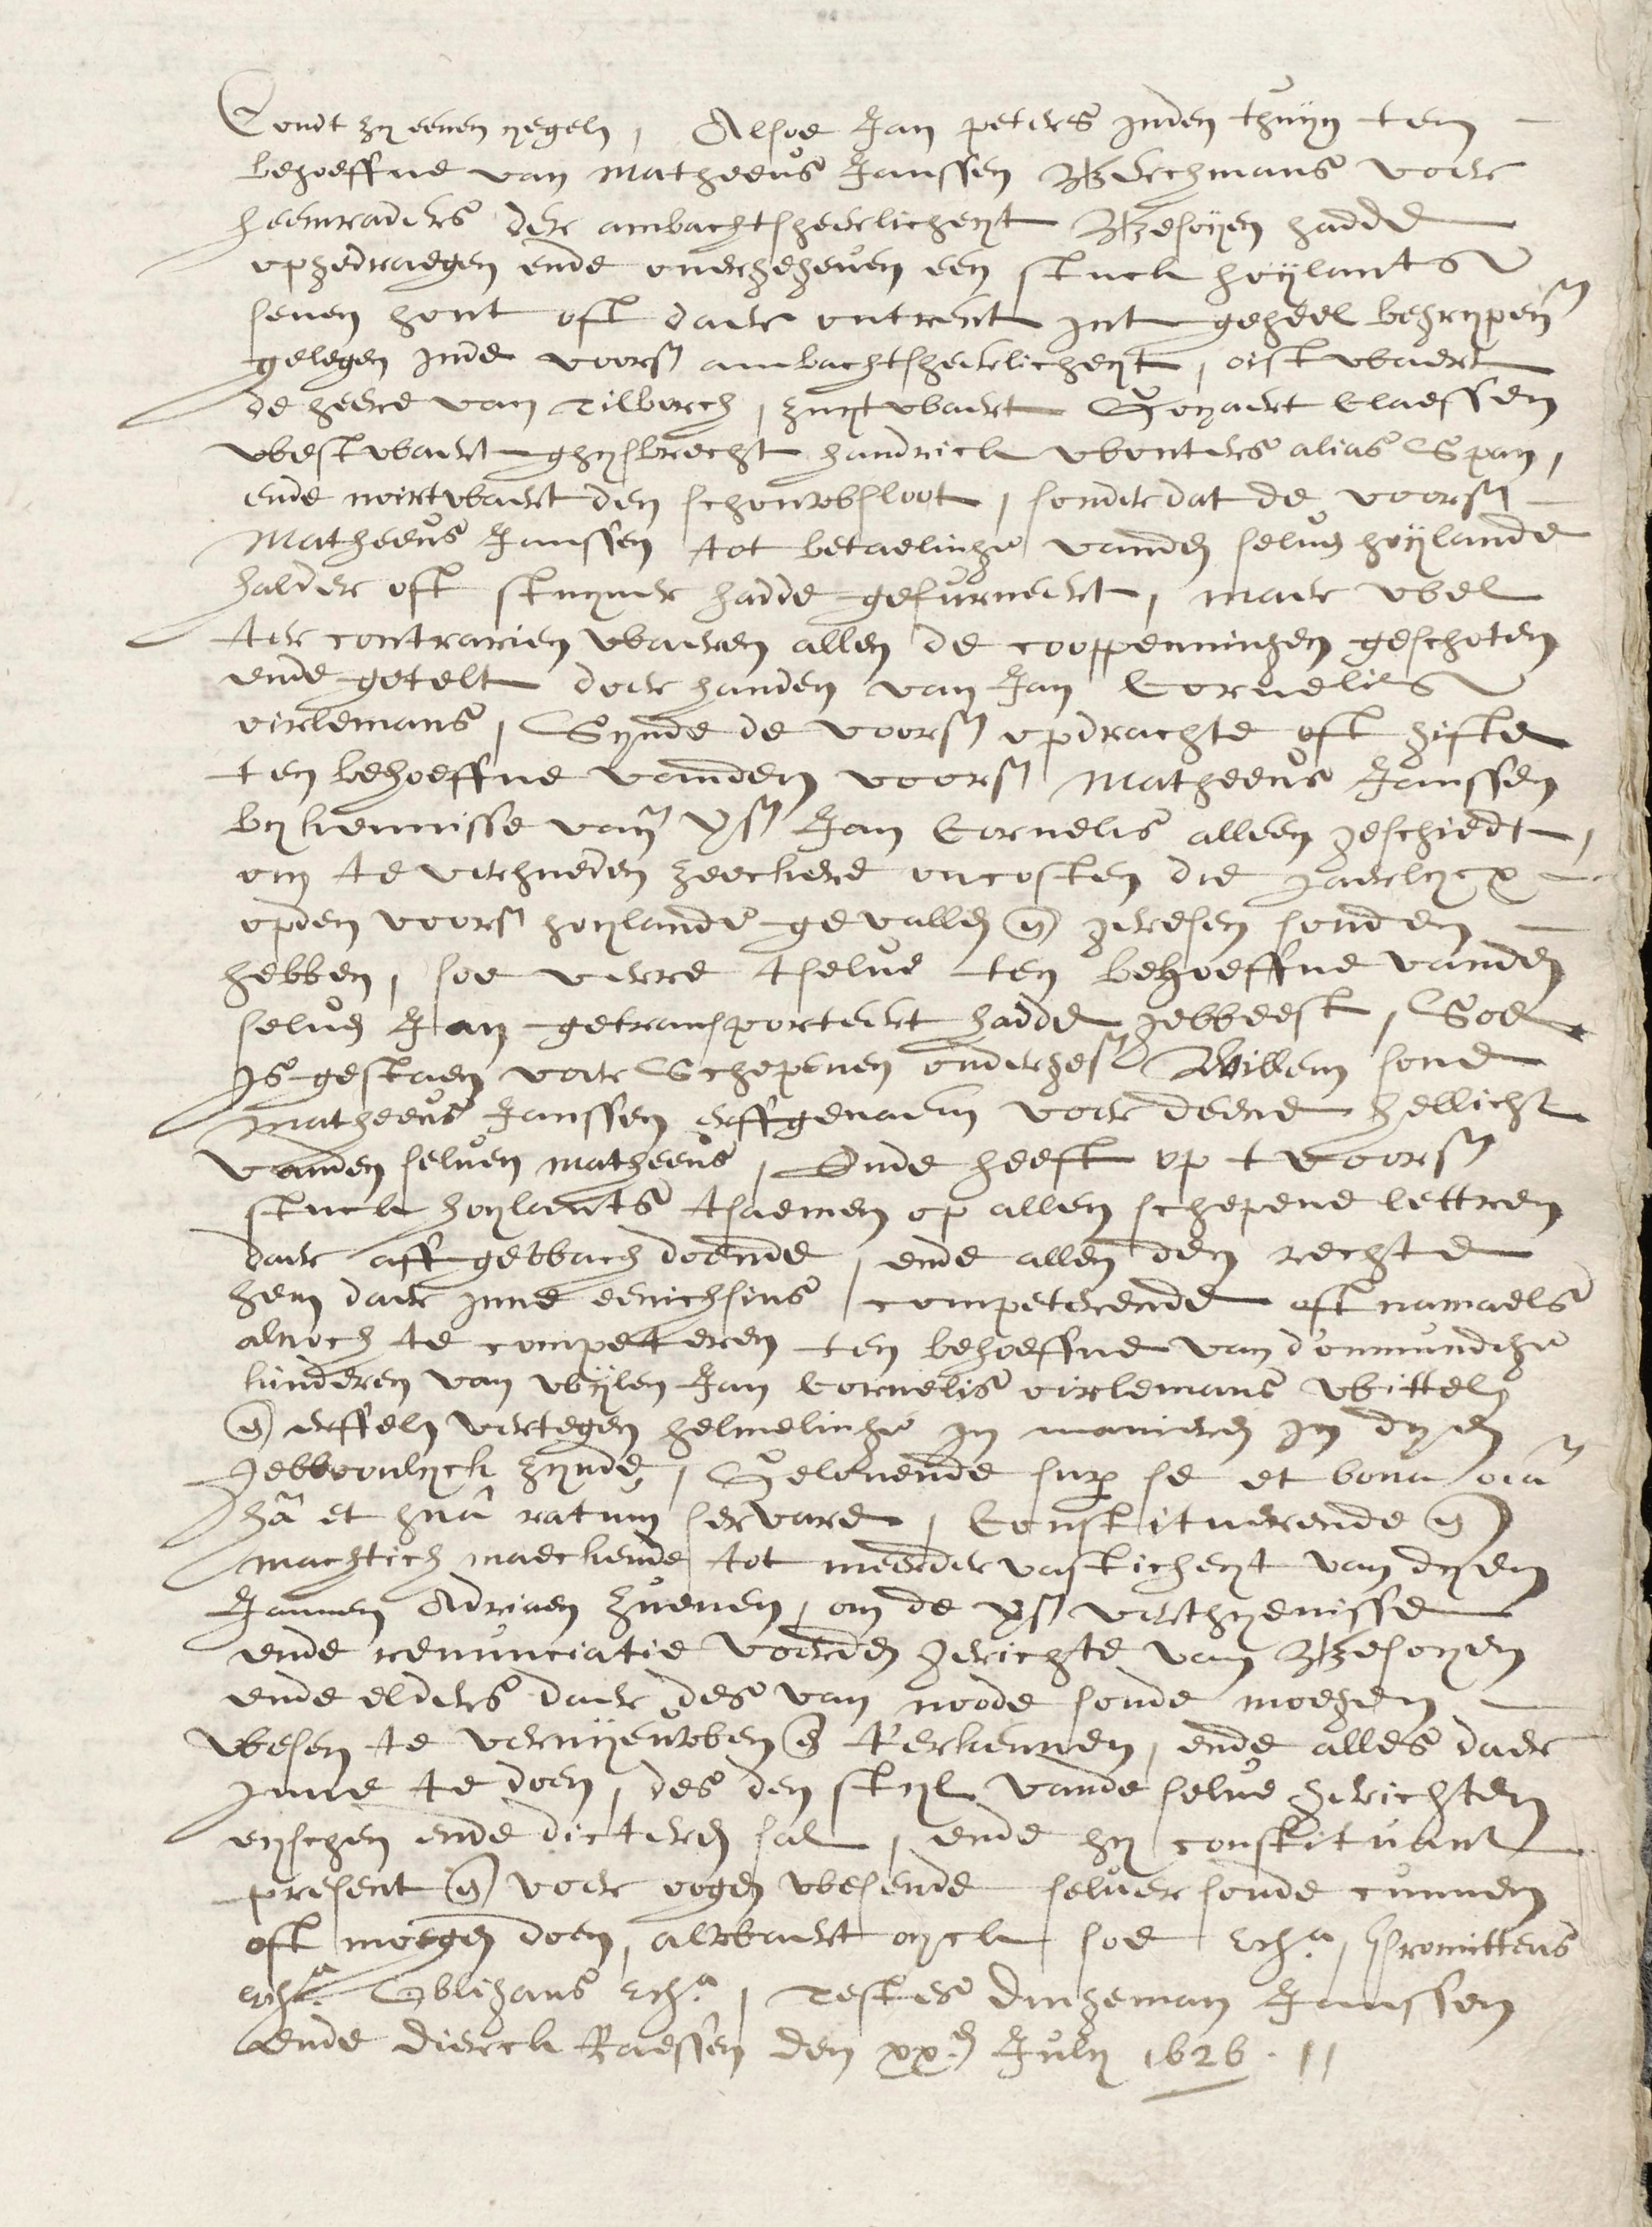 Condt zy eenen yegeln, Alsoe Jan peters inden thuyn ten
behoeffue van Matheeus Janssen Berchmans voer
heemraders der ambachtsheerlicheyt Besoyen hadde
opgedraegen ende ouergegeuen een stuck hoylants
seuen hont oft daer ontrent int geheel begrypen
gelegen inde voors ambachtsheerlicheyt, oistwaert
de heere van Tilborch, zuytwaert Goyaert Claessen
westwaert ghysbrecht handrick wouters alias Span,
ende noirtwaert den schouwsloot, sonder dat de voors
Matheeus Janssen tot betaelinge vanden seluen hoylande
halder oft stuyuer hadde gefurneert, maer wel
ter contrarien waeren allen de cooppenningen geschoten
ende getelt doer handen van Jan Cornelis
virlemans, Synde de voors opdrachte oft gifte
ten behoeffue vanden voors Matheeus Janssen
by kennisse van vs Jan Cornelis alleen geschiedt,
om te verhueden zeeckere oncosten die jaerlycx
opden voors hoylande gevallen en geresen souden
hebben, soe verre tselue ten behoeffue vanden
seluen Jan getransporteert hadde geweest, Soe
is gestaen voer Schepenen onderges Willem sone
Matheeus Janssen erffgenaem voer deene hellicht
vanden seluen matheeus, Ende heeft op t voors
stuck hoylants tsaemen op allen schepene lettren
daer aff gewach doende, ende allen den rechte
hem daer inne eenichsins competerende oft namaels
alnoch te competeren ten behoeffue van d'onmundige
kinderen van wylen Jan Cornelis virlemans wittel
en erffel vertegen helmelinge in manieren in dyen
gewoonlyck zynde, Geloeuende sup se et bona oia
hã et hnã ratum servare, Constituerende en
machtich maeckende tot meerder vasticheyt van dyen
Jannen Adriaen Zueuen, om de vs verthyenisse
ende renunciatie voerden gerichte van Besoyen
ende elders daer des van noode soude moegen
wesen te vernyeuwben en t'erkennen, ende alles daer
inne te doen, des den styl vande selue gerichten
eysschen ende dicteren sal, ende hy constituant
present en voer oogen wesende seluer soude cunnen
oft moegen doen, alwaert oyck soe etca, Promittens
etca. Obligans etca, Testes Dingeman Janssen
ende dierck Raessen den xxen July 1626.